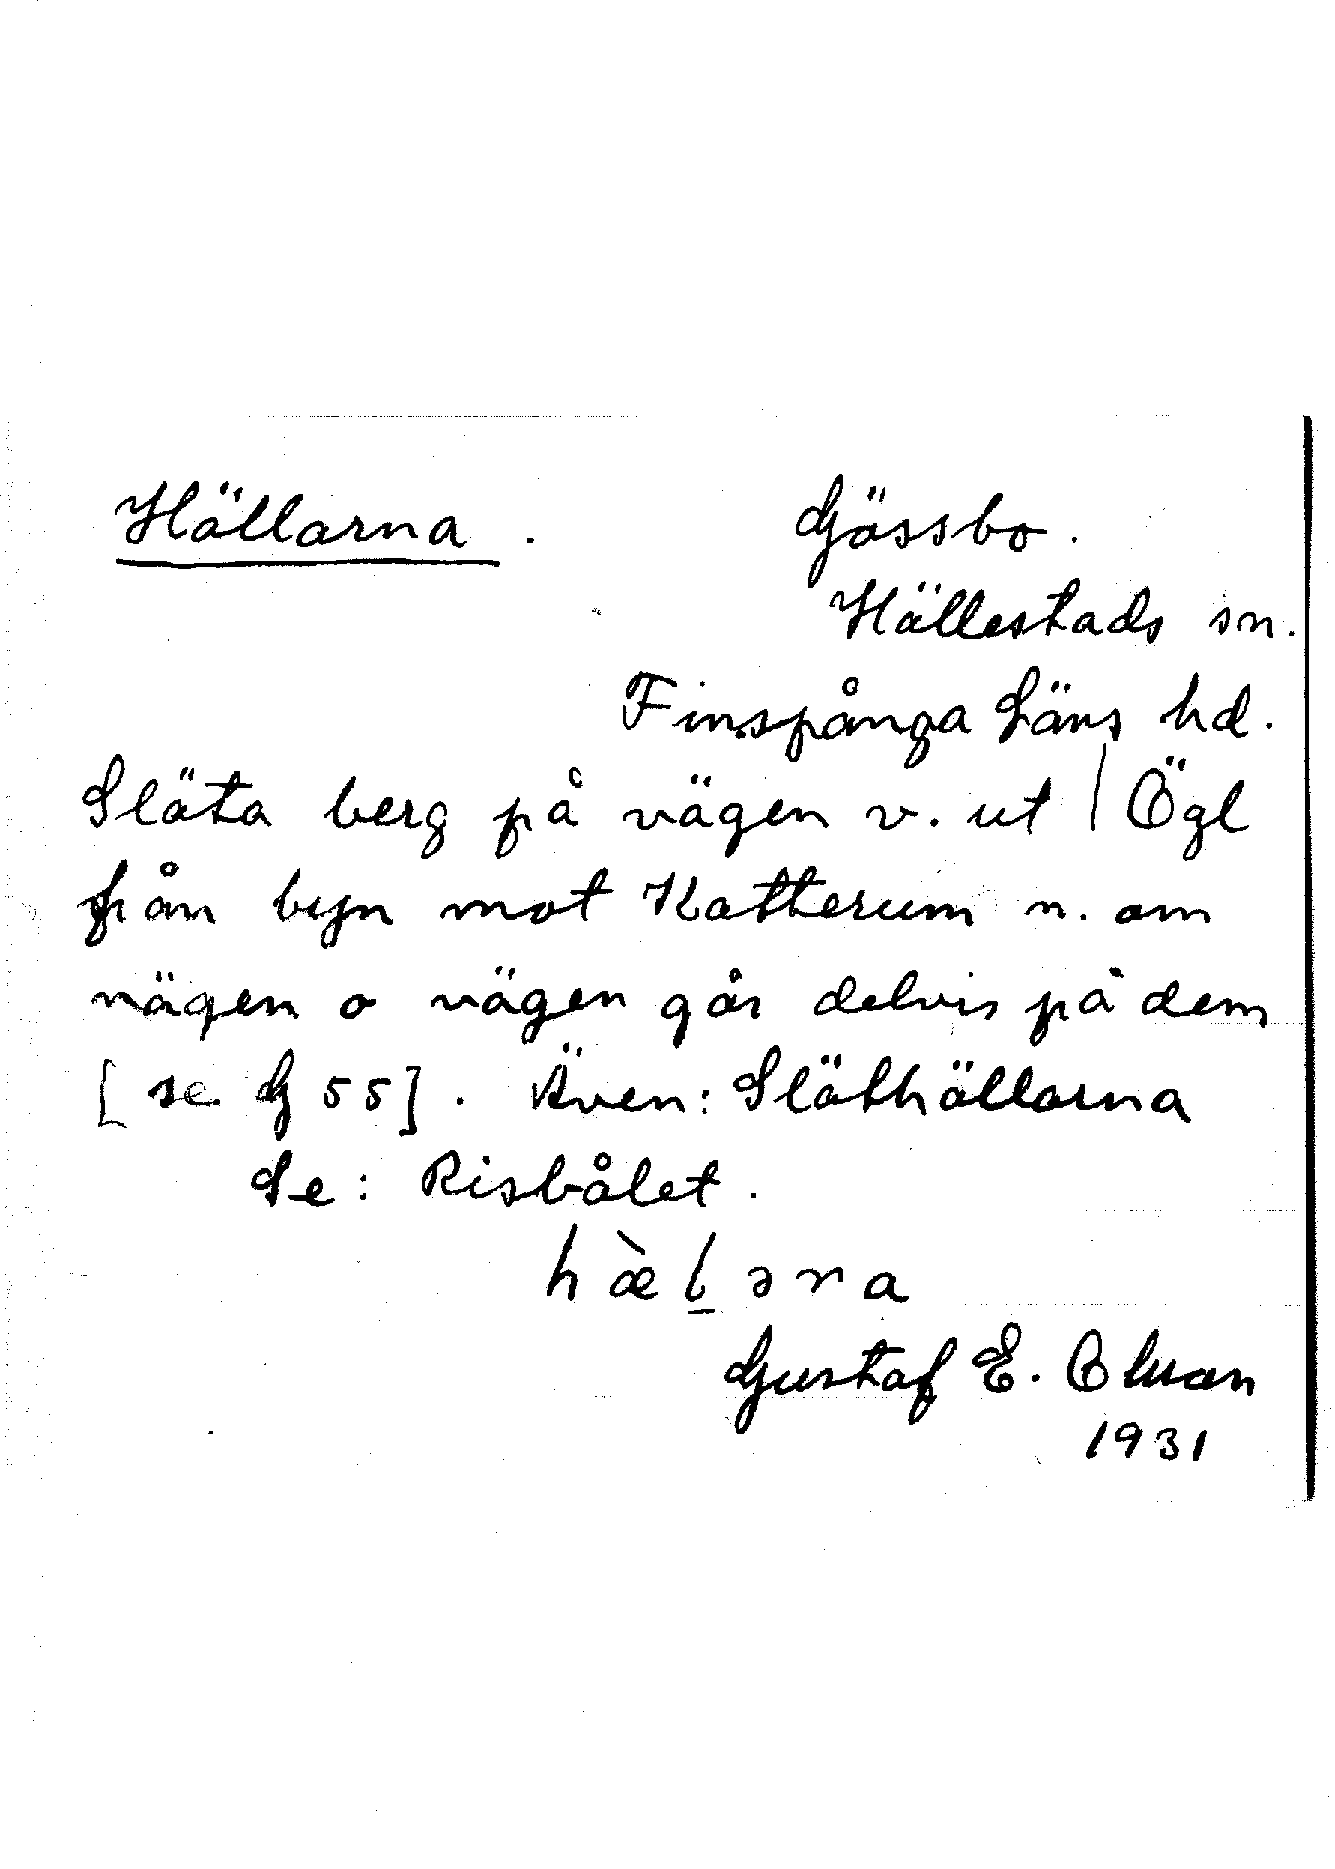 Hällarna. Gössbo.
Hällestads sn.
Finspånga Läns hd.
Släta berg på vägen v. ut | Ögl
från byn mot Katterum n. om
vägen o vägen går delvis på dem
[se G 55]. Även: Släthällarna
Se: Risbålet.
hæ̀ḻəra
Gustaf E.
1931